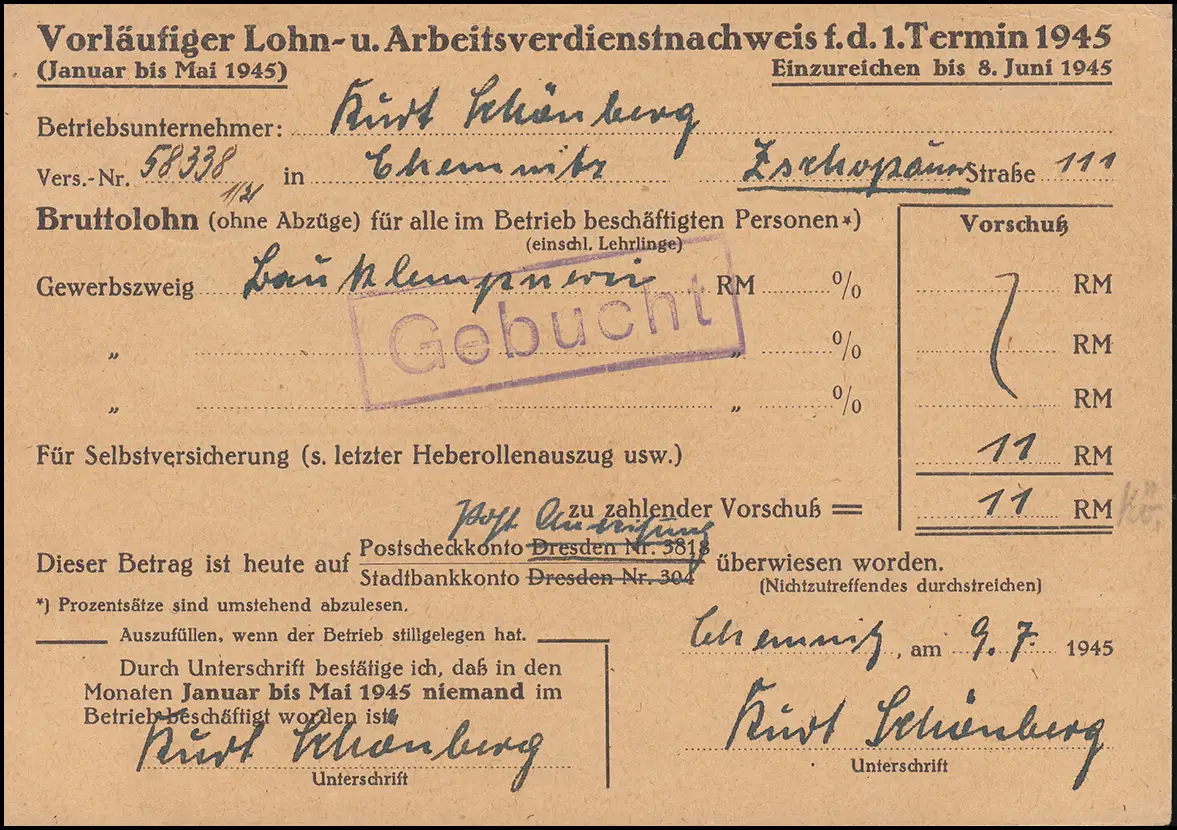 Vorläufiger Lohn- u. Arbeitsverdienstnachweis f. d. 1. Termin 1945
(Januar bis Mai 1945) Einzureichen bis 8. Juni 1945
Betriebsunternehmer: Kurt Schönberg
Vers.-Nr. 58338 in Chemnitz Zschopauer Straße 111
Bruttolohn (ohne Abzüge) für alle im Betrieb beschäftigten Personen*) Vorschuß
(einschl. Lehrlinge)
Gewerbszweig Bauklempnerei RM % RM
Gebucht
„ „ % RM
„ „ % RM
Für Selbstversicherung (s. letzter Heberollenauszug usw.) 11 RM
zu zahlender Vorschuß = 11 RM
Post Anweisung
Dieser Betrag ist heute auf Postscheckkonto Dresden Nr. 3818 überwiesen worden.
Stadtbankkonto Dresden Nr. 304 (Nichtzutreffendes durchstreichen)
*) Prozentsätze sind umstehend abzulesen.
Auszufüllen, wenn der Betrieb stillgelegen hat.
Chemnitz, am 9. 7. 1945
Durch Unterschrift bestätige ich, daß in den
Monaten Januar bis Mai 1945 niemand im
Betrieb beschäftigt worden ist.
Kurt Schönberg Kurt Schönberg
Unterschrift Unterschrift